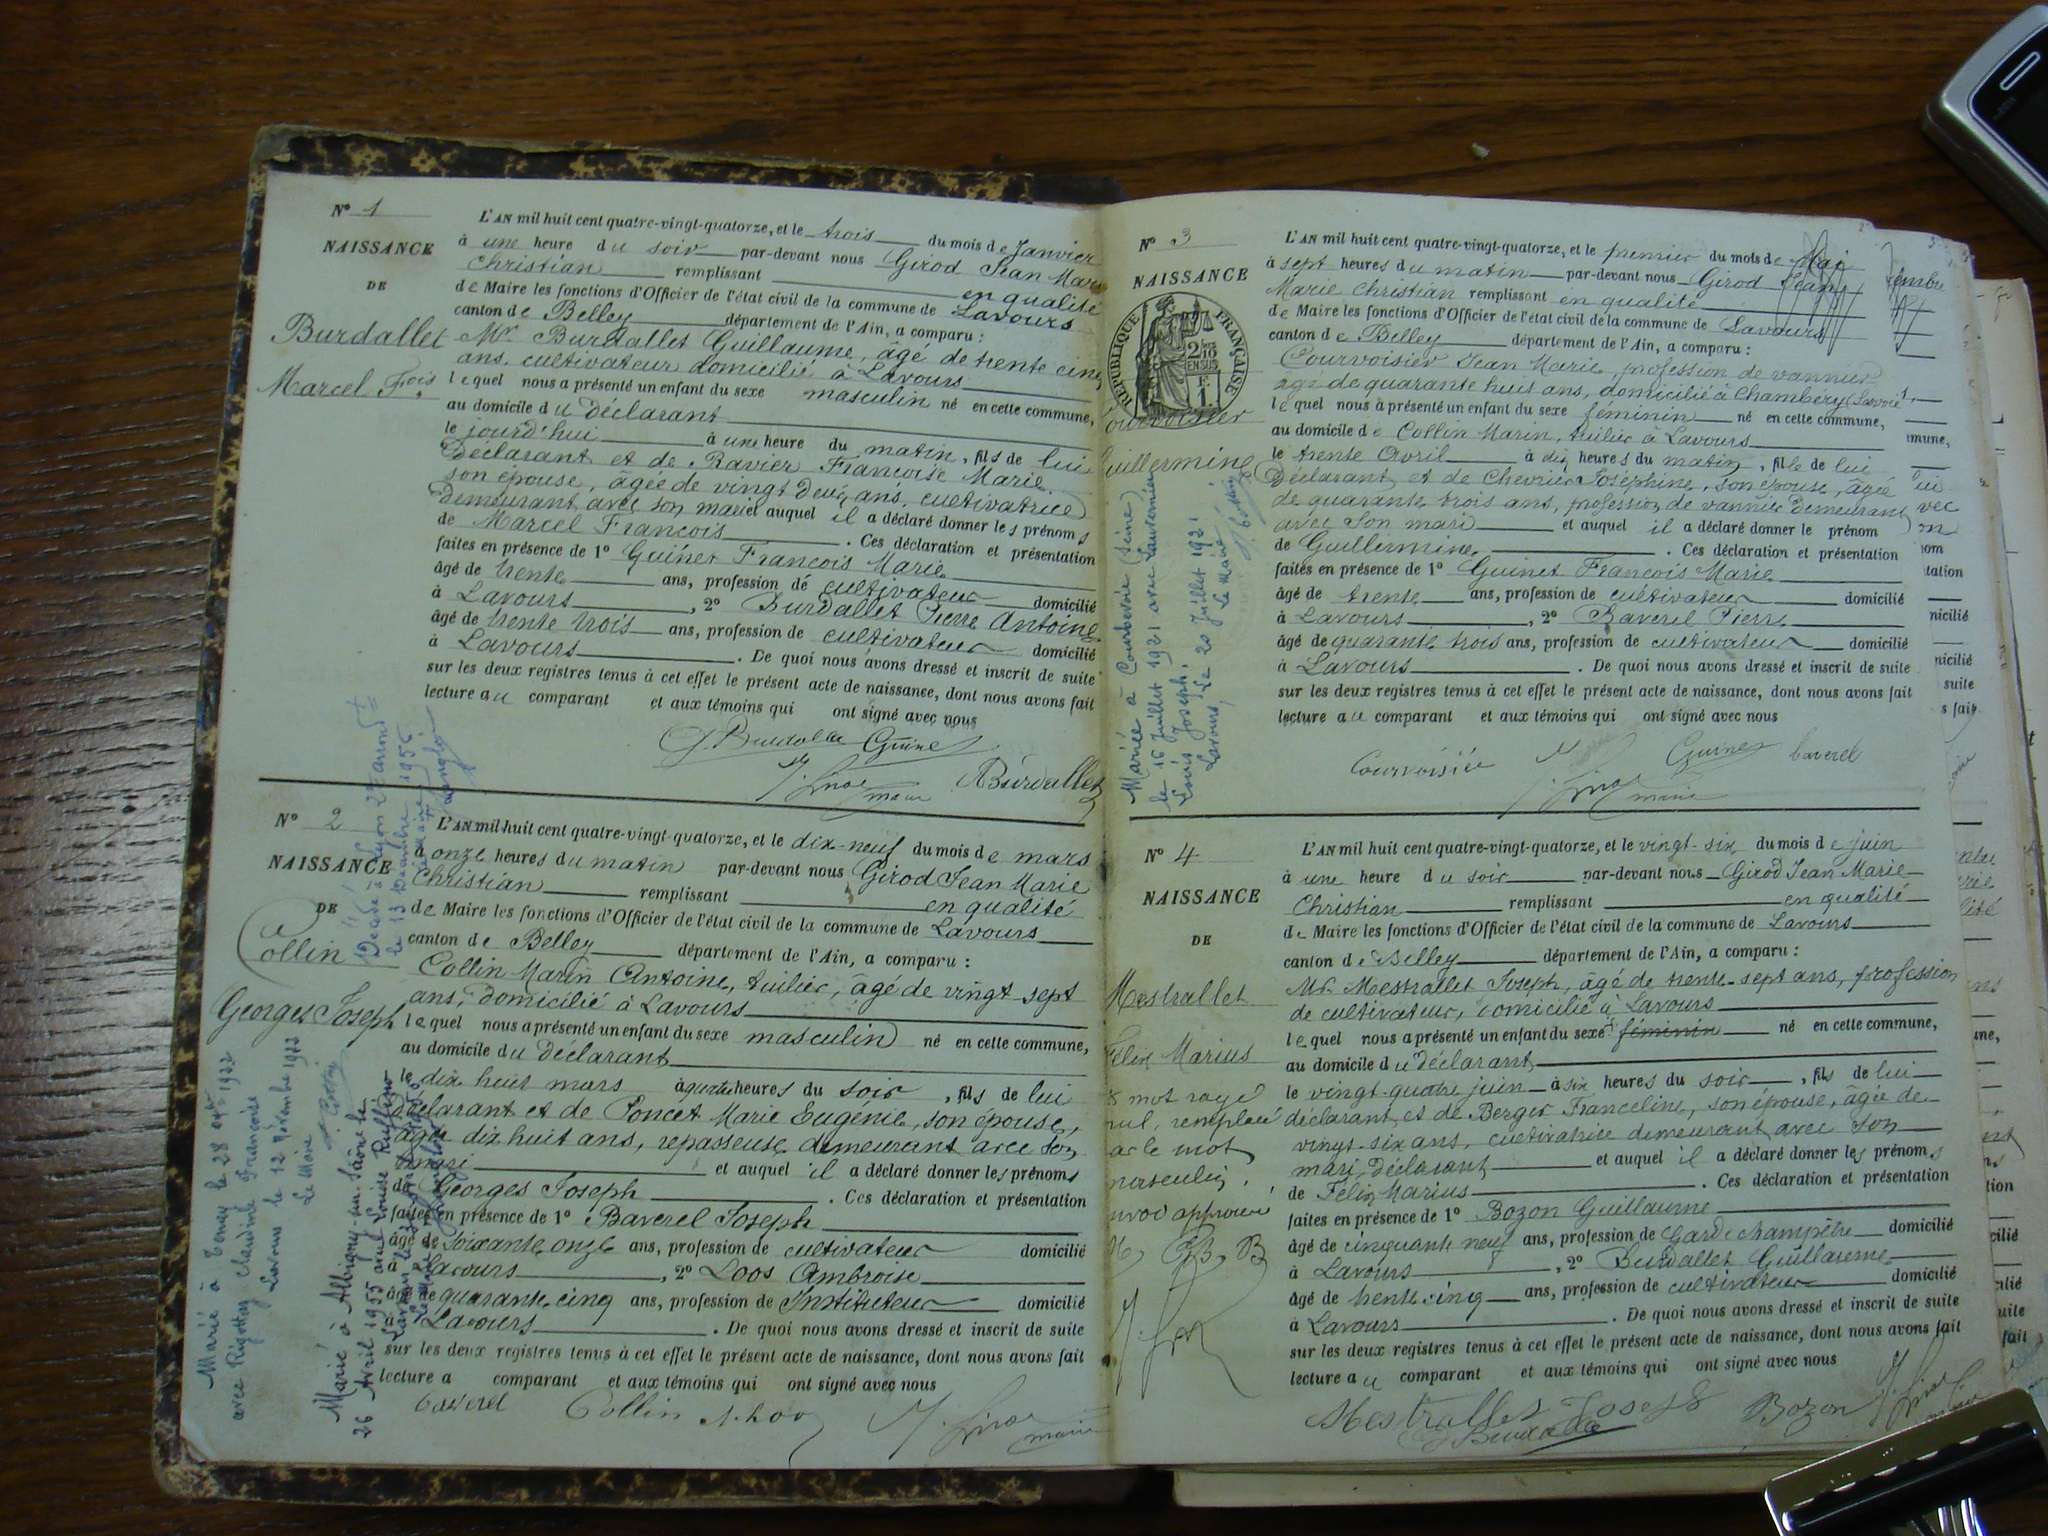 N° 1
NAISSANCE
DE
Burdallet
Marcel Fois
L'AN mil huit cent quatre-vingt-quatorze, et le trois du mois de Janvier
à une heure du soir par-devant nous Girod Jean Marie
Christian remplissant en qualité
de Maire les fonctions d'Officier de l'état civil de la commune de Lavours
canton de Belley département de l'Ain, a comparu :
Mr Burdallet Guillaume, âgé de trente cinq
ans, cultivateur domicilié à Lavours
lequel nous a présenté un enfant du sexe masculin né en cette commune,
au domicile du déclarant
le jourd'hui à une heure du matin, fils de lui
déclarant et de Ravier Françoise Marie
son épouse, âgée de vingt deux ans, cultivatrice
demeurant avec son mari et auquel il a déclaré donner les prénoms
de Marcel François. Ces déclaration et présentation
faites en présence de 1° Guinet François Marie
âgé de trente ans, profession de cultivateur domicilié
à Lavours, 2° Burdallet Pierre Antoine
âgé de trente trois ans, profession de cultivateur domicilié
à Lavours. De quoi nous avons dressé et inscrit de suite
sur les deux registres tenus à cet effet le présent acte de naissance, dont nous avons fait
lecture au comparant et aux témoins qui ont signé avec nous
G Burdallet Guinet
J. Girod maire Burdallet
N° 2
NAISSANCE
DE
Collin
Georges Joseph
Décédé à Lyon 2e arrondt
le 13 Décembre 1956
Marié à Tenay le 28 1922
avec Rigottay Claudine Françoise
Lavours le 12 Novembre 1923
Le Maire
Marié à Albigny-sur-Saône le
26 Avril 1955 avec Louise Ruffino
L'AN mil huit cent quatre-vingt-quatorze, et le dix-neuf du mois de mars
à onze heures du matin par-devant nous Girod Jean Marie
Christian remplissant en qualité
de Maire les fonctions d'Officier de l'état civil de la commune de Lavours
canton de Belley département de l'Ain, a comparu :
Collin Marin Antoine, tuilier, âgé de vingt sept
ans, domicilié à Lavours
lequel nous a présenté un enfant du sexe masculin né en cette commune,
au domicile du déclarant
le dix huit mars à quatre heures du soir, fils de lui
déclarant et de Poncet Marie Eugénie, son épouse,
âgée dix huit ans, repasseuse demeurant avec son
mari et auquel il a déclaré donner les prénoms
de Georges Joseph. Ces déclaration et présentation
faites en présence de 1° Baverel Joseph
âgé de soixante onze ans, profession de cultivateur domicilié
à Lavours, 2° Loos Ambroise
âgé de quarante cinq ans, profession de Instituteur domicilié
à Lavours. De quoi nous avons dressé et inscrit de suite
sur les deux registres tenus à cet effet le présent acte de naissance, dont nous avons fait
lecture a comparant et aux témoins qui ont signé avec nous
Baverel Collin A. Loos J. Girod maire
N° 3
NAISSANCE
RÉPUBLIQUE FRANÇAISE
2/10
EN SUS
Courvoisier
Guillermine
Mariée à Courbevoie (Seine)
le 16 Juillet 1921 avec
Louis Joseph
Lavours, le 20 Juillet 1921
Le Maire
L'AN mil huit cent quatre-vingt-quatorze, et le premier du mois de Mai
à sept heures du matin par-devant nous Girod Jean
Marie Christian remplissant en qualité
de Maire les fonctions d'Officier de l'état civil de la commune de Lavours
canton de Belley département de l'Ain, a comparu :
Courvoisier Jean Marie, profession de vannier
âgé de quarante huit ans, domicilié à Chambéry (Savoie)
lequel nous a présenté un enfant du sexe féminin né en cette commune,
au domicile de Collin Marin, tuilier à Lavours
le trente Avril à dix heures du matin, fille de lui
déclarant et de Chevrier Joséphine, son épouse, âgée
de quarante trois ans, profession de vannier demeurant
avec son mari et auquel il a déclaré donner le prénom
de Guillermine. Ces déclaration et présentation
faites en présence de 1° Guinet François Marie
âgé de trente ans, profession de cultivateur domicilié
à Lavours, 2° Baverel Pierre
âgé de quarante trois ans, profession de cultivateur domicilié
à Lavours. De quoi nous avons dressé et inscrit de suite
sur les deux registres tenus à cet effet le présent acte de naissance, dont nous avons fait
lecture au comparant et aux témoins qui ont signé avec nous
Courvoisier Guinet Baverel
J. Girod maire
N° 4
NAISSANCE
DE
Mestrallet
Félix Marius
mot rayé
nul, remplacé
par le mot
masculin.
approuvé
L'AN mil huit cent quatre-vingt-quatorze, et le vingt-six du mois de juin
à une heure du soir par-devant nous Girod Jean Marie
Christian remplissant en qualité
de Maire les fonctions d'Officier de l'état civil de la commune de Lavours
canton de Belley département de l'Ain, a comparu :
Mr. Mestrallet Joseph, âgé de trente-sept ans, profession
de cultivateur, domicilié à Lavours
lequel nous a présenté un enfant du sexe féminin né en cette commune,
au domicile du déclarant
le vingt-quatre juin à six heures du soir, fils de lui
déclarant et de Berger Franceline, son épouse, âgée de
vingt-six ans, cultivatrice demeurant avec son
mari déclarant et auquel il a déclaré donner les prénoms
de Félix Marius. Ces déclaration et présentation
faites en présence de 1° Bozon Guillaume
âgé de cinquante neuf ans, profession de Garde champêtre domicilié
à Lavours, 2° Burdallet Guillaume
âgé de trente cinq ans, profession de cultivateur domicilié
à Lavours. De quoi nous avons dressé et inscrit de suite
sur les deux registres tenus à cet effet le présent acte de naissance, dont nous avons fait
lecture au comparant et aux témoins qui ont signé avec nous
Mestrallet Joseph Bozon J. Girod
G Burdallet